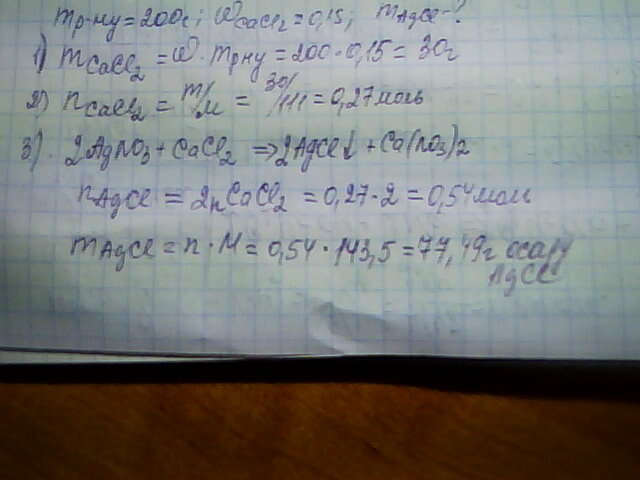 mр-ну = 200г; ω CaCl2 = 0,15; mAgCl - ?
1) mCaCl2 = ω · mр-ну = 200 · 0,15 = 30г
2) nCaCl2 = m/M = 30/111 = 0,27 моль
3) 2AgNO3 + CaCl2 ⇒ 2AgCl↓ + Ca(NO3)2
nAgCl = 2nCaCl2 = 0,27 · 2 = 0,54 моль
mAgCl = n · M = 0,54 · 143,5 = 77,49г осаду
AgCl